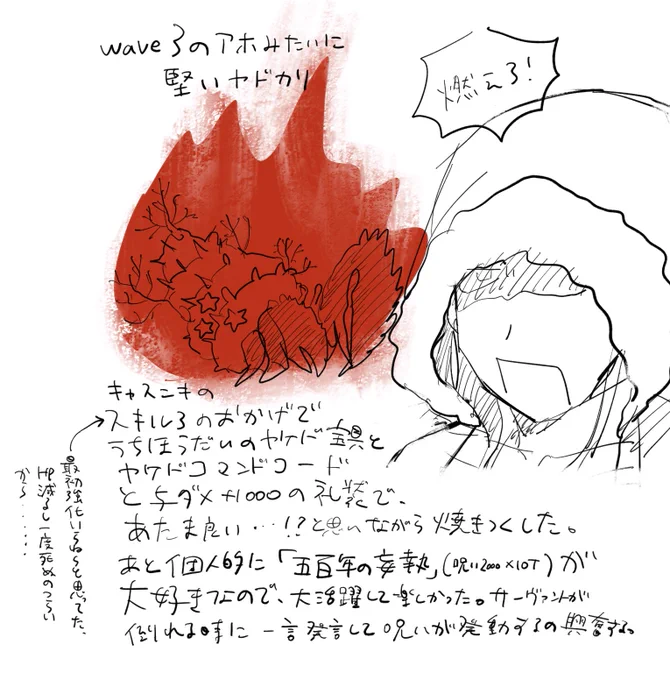 wave3のアホみたいに
堅いヤドカリ
燃えろ!
キャスニキの
スキル3のおかげで
うちほうだいのヤケド宝具と
ヤケドコマンドコード
と与ダメ+1000の礼装で、
あたま良い…!?と思いながら焼きつくした。
あと個人的に「五百年の妄執」(呪い2000×10T)が
大好きなので、大活躍して楽しかった。サーヴァントが
倒れる時に一言発言して呪いが発動するの興奮する
最初強化いらねーと思ってた、
HP減るし一度死ぬのつらい
から……